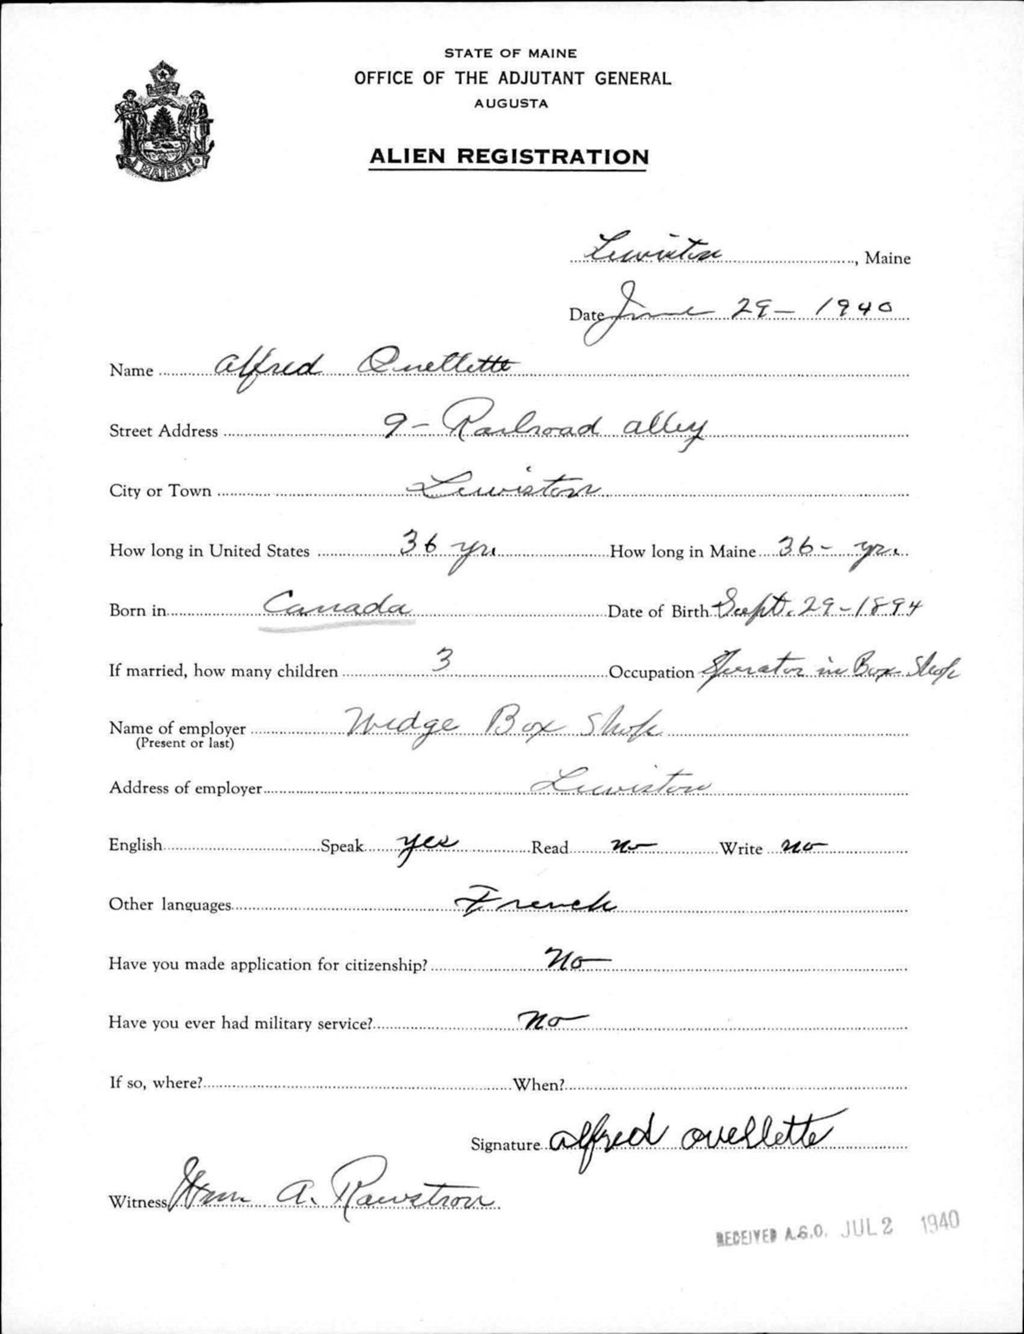 STATE OF MAINE
OFFICE OF THE ADJUTANT GENERAL
AUGUSTA
ALIEN REGISTRATION
MAINE
Lewiston, Maine
Date June 29 - 1940
Name Alfred Ouellette
Street Address 9 - Railroad alley
City or Town Lewiston
How long in United States 36 yrs How long in Maine 36 - yrs.
Born in Canada Date of Birth Sept. 29 - 1894
If married, how many children 3 Occupation Operator in Box Shop
Name of employer Wedge Box Shop
(Present or last)
Address of employer Lewiston
English Speak yes Read no Write no
Other languages French
Have you made application for citizenship? No
Have you ever had military service? no
If so, where? When?
Signature alfred ouellette
Witness Wm A. Rawstron
RECEIVED A.G.O. JUL 2 1940